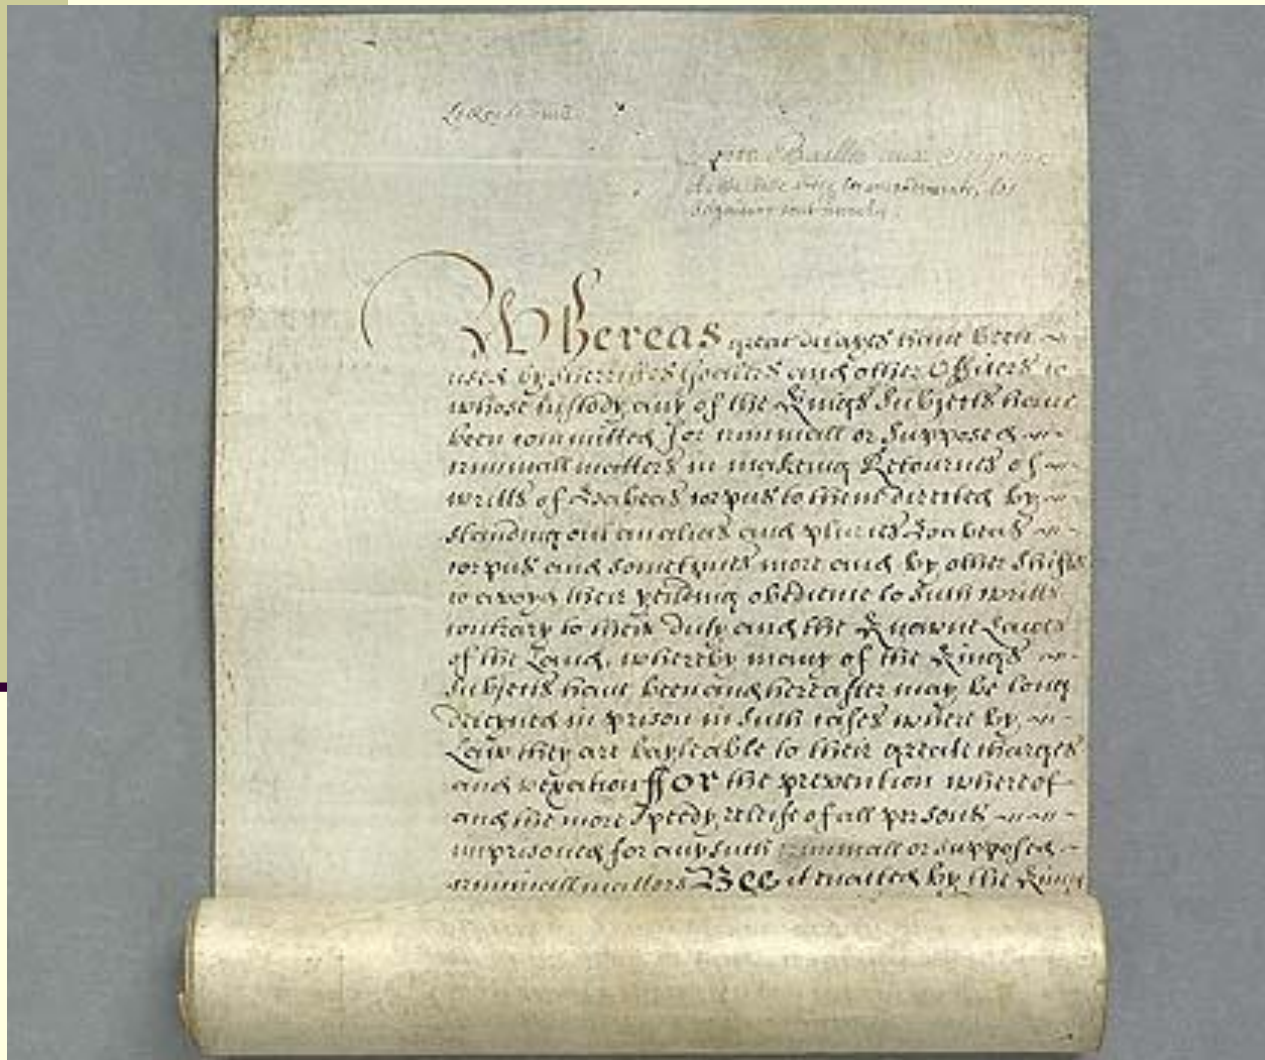 Le Roy le veult
Soit Baille aux Seigneurs
les amendments, les
Seigneurs sont
Whereas great delayes have been
used by Sherriffes Goalers and other Officers to
whose custody any of the Kings Subjects have
been committed for criminall or Supposed
criminall matters in makeing Retournes of
writts of Habeas corpus to them directed by
standing out an alias and pluries Habeas
corpus and sometymes more and by other Shifts
to avoyd their yeilding obedience to Such writts
contrary to their Duty and the Knowne Lawes
of the Land, whereby many of the Kings
Subjects have been and hereafter may be long
deteyned in prison in Such cases where by
Law they are bayleable to their greate charges
and vexation ffor the prevention whereof
and the more Speedy releife of all persons
imprisoned for any such criminall or supposed
criminall matters Bee it enacted by the Kings